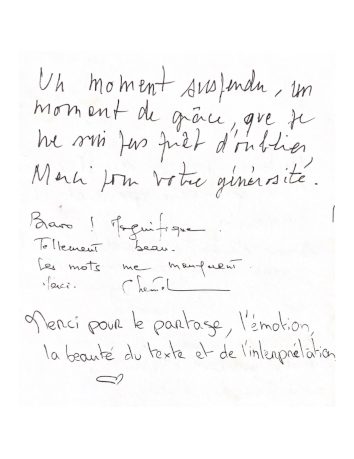 Un moment suspendu, un
moment de grâce, que je
ne suis pas prêt d'oublier
Merci pour votre générosité.
Bravo ! Magnifique
Tellement beau.
Les mots me manquent
Merci.
Merci pour le partage, l'émotion,
la beauté du texte et de l'interprétation